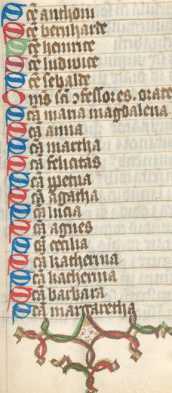 Scē anthoni
Scē bernharde
Scē heinrice
Scē ludwice
Scē sebalde
Oīs scī ꝯfessores. orate
Scā maria magdalena
Scā anna
Scā martha
Scā felicitas
Scā ꝑpetua
Scā agatha
Scā lucia
Scā agnes
Scā cecilia
Scā katherina
Scā katherina
Scā barbara
Scā margaretha